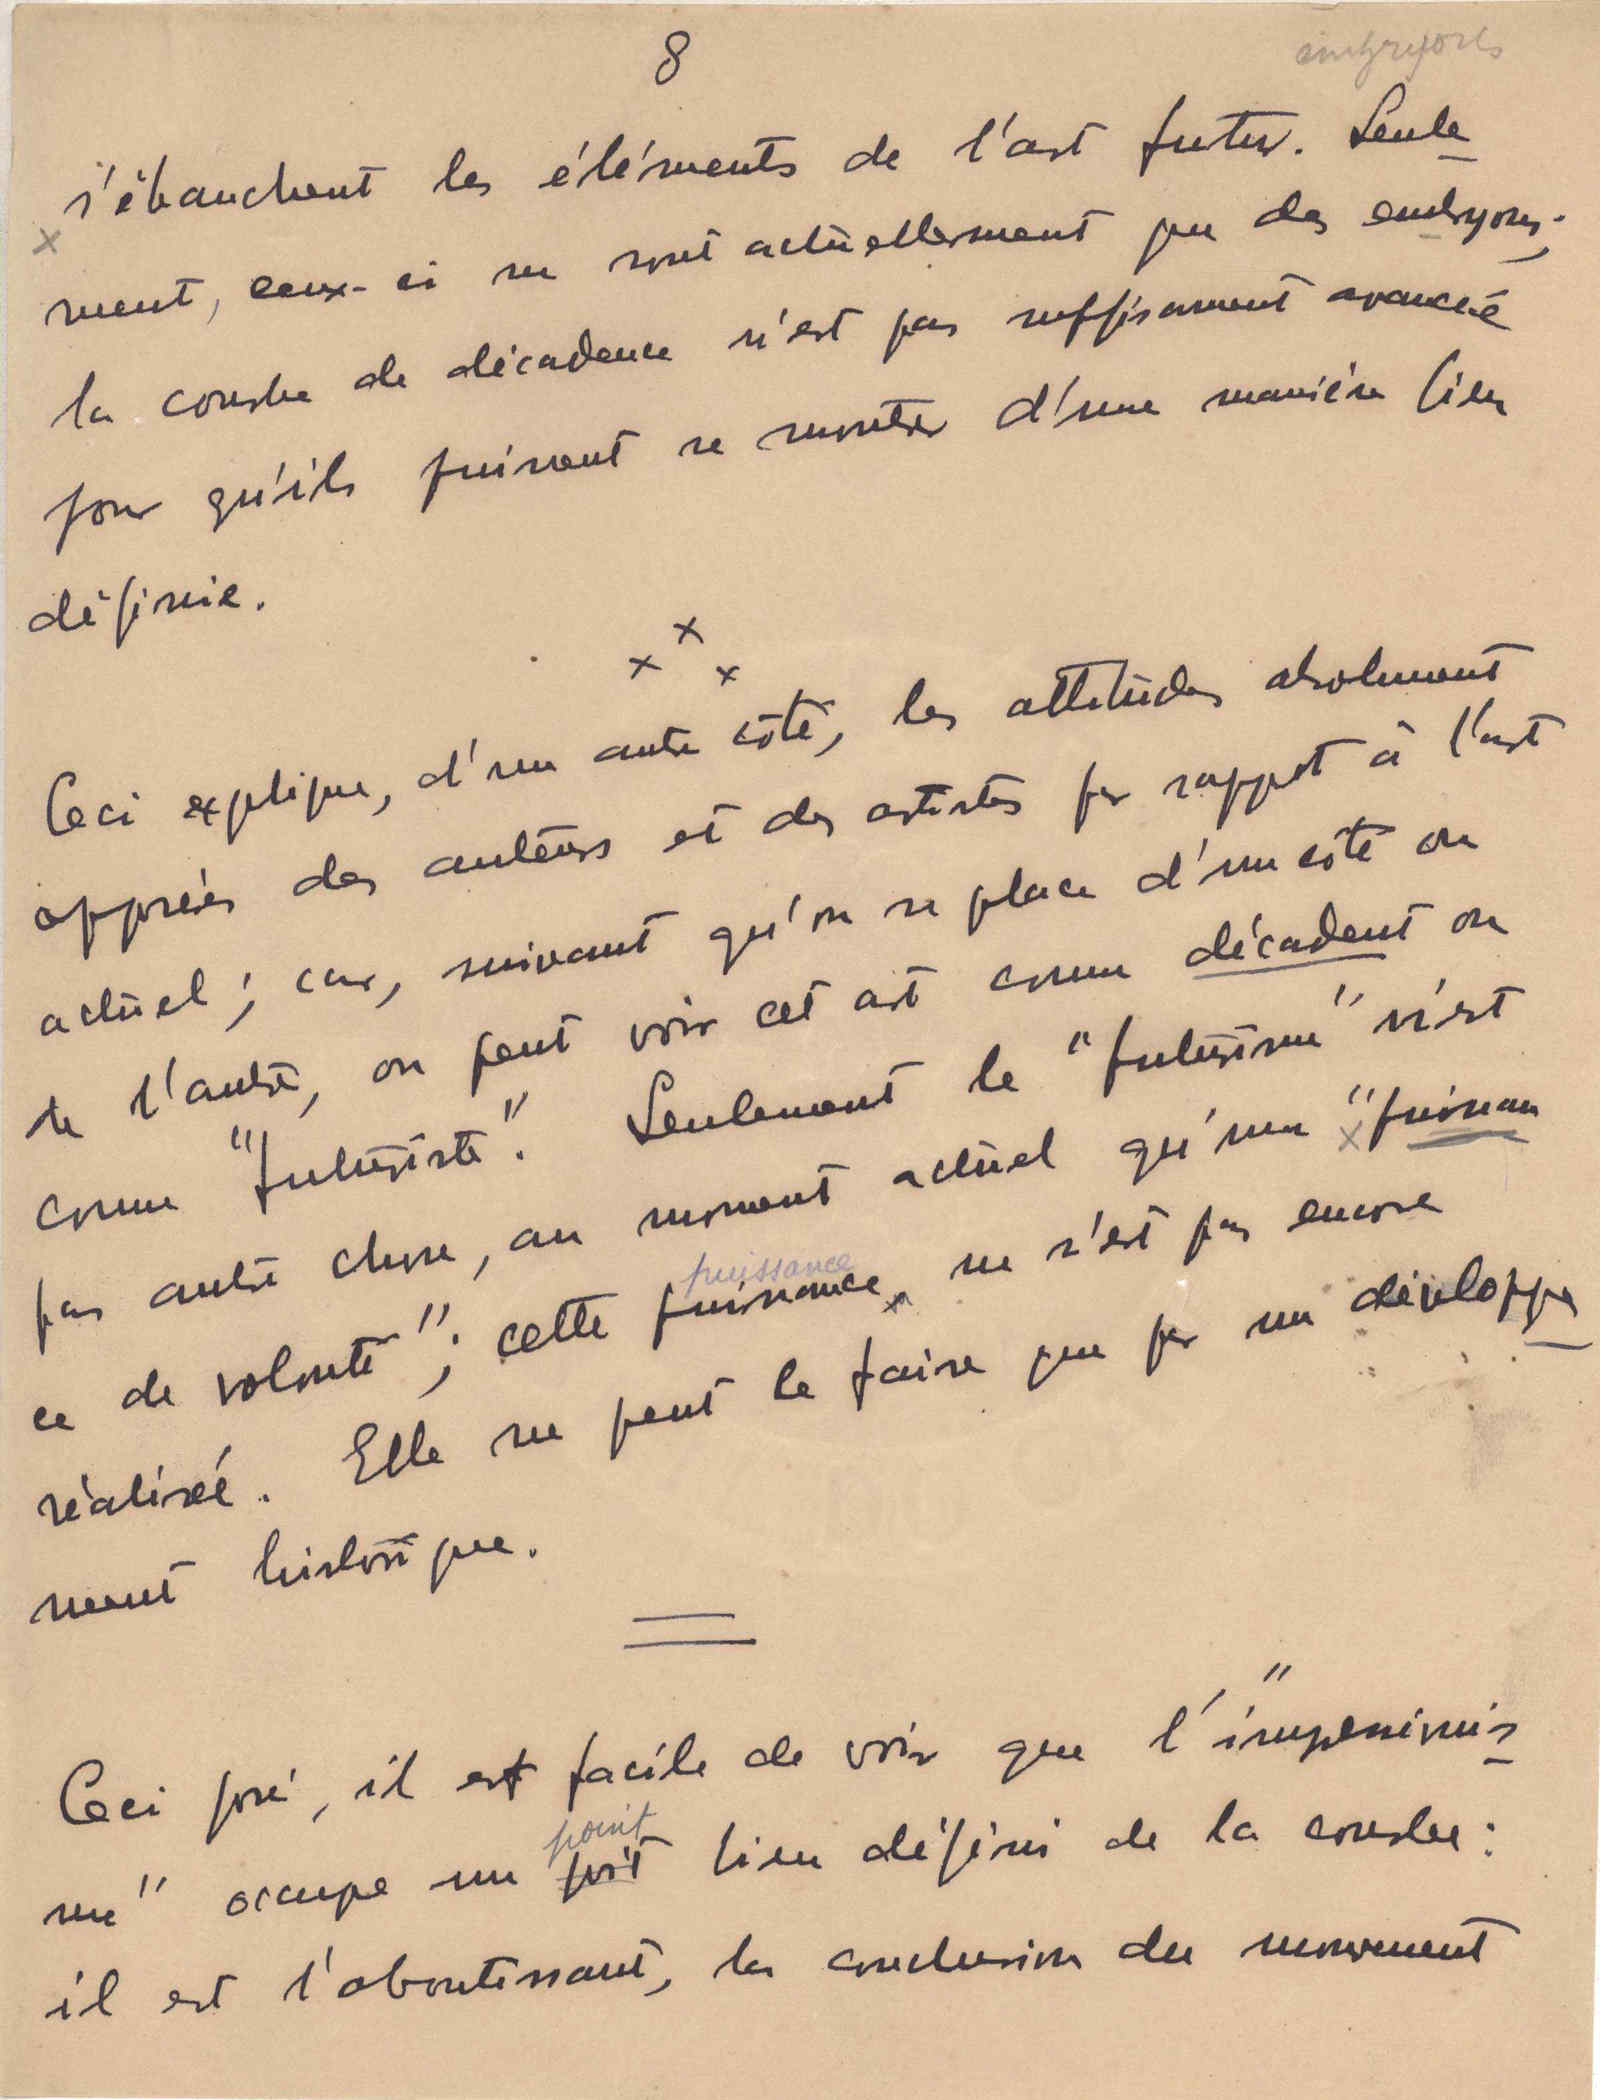 8
embryons
s'ébauchent les éléments de l'art futur. Seule
x
ment, ceux-ci ne sont actuellement que des embryons;
la courbe de décadence n'est pas suffisament avancée
pour qu'ils puissent se montrer d'une manière bien
définie.
x x x
Ceci explique, d'un autre côté, les attitudes absolument
opposées des auteurs et des artistes par rapport à l'art
actuel; car, suivant qu'on se place d'un côté ou
de l'autre, on peut voir cet art comme décadent ou
comme "futuriste". Seulement le "futurisme" n'est
pas autre chose, au moment actuel qu'une x "puissan
puissance
ce de volonté"; cette puissance x ne s'est pas encore
réalisée. Elle ne peut le faire que par un développe
ment historique.
Ceci posé, il est facile de voir que l'"impressionis
point
me" occupe un point bien défini de la courbe:
il est l'aboutissant, la conclusion du mouvement